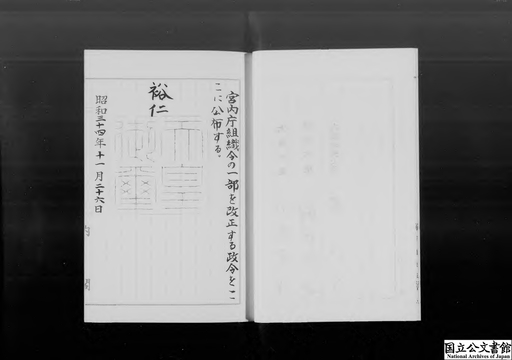 宮内庁組織令の一部を改正する政令をこ
こに公布する。
裕仁
天皇
御璽
昭和三十四年十一月二十六日
内閣
国立公文書館
National Archives of Japan